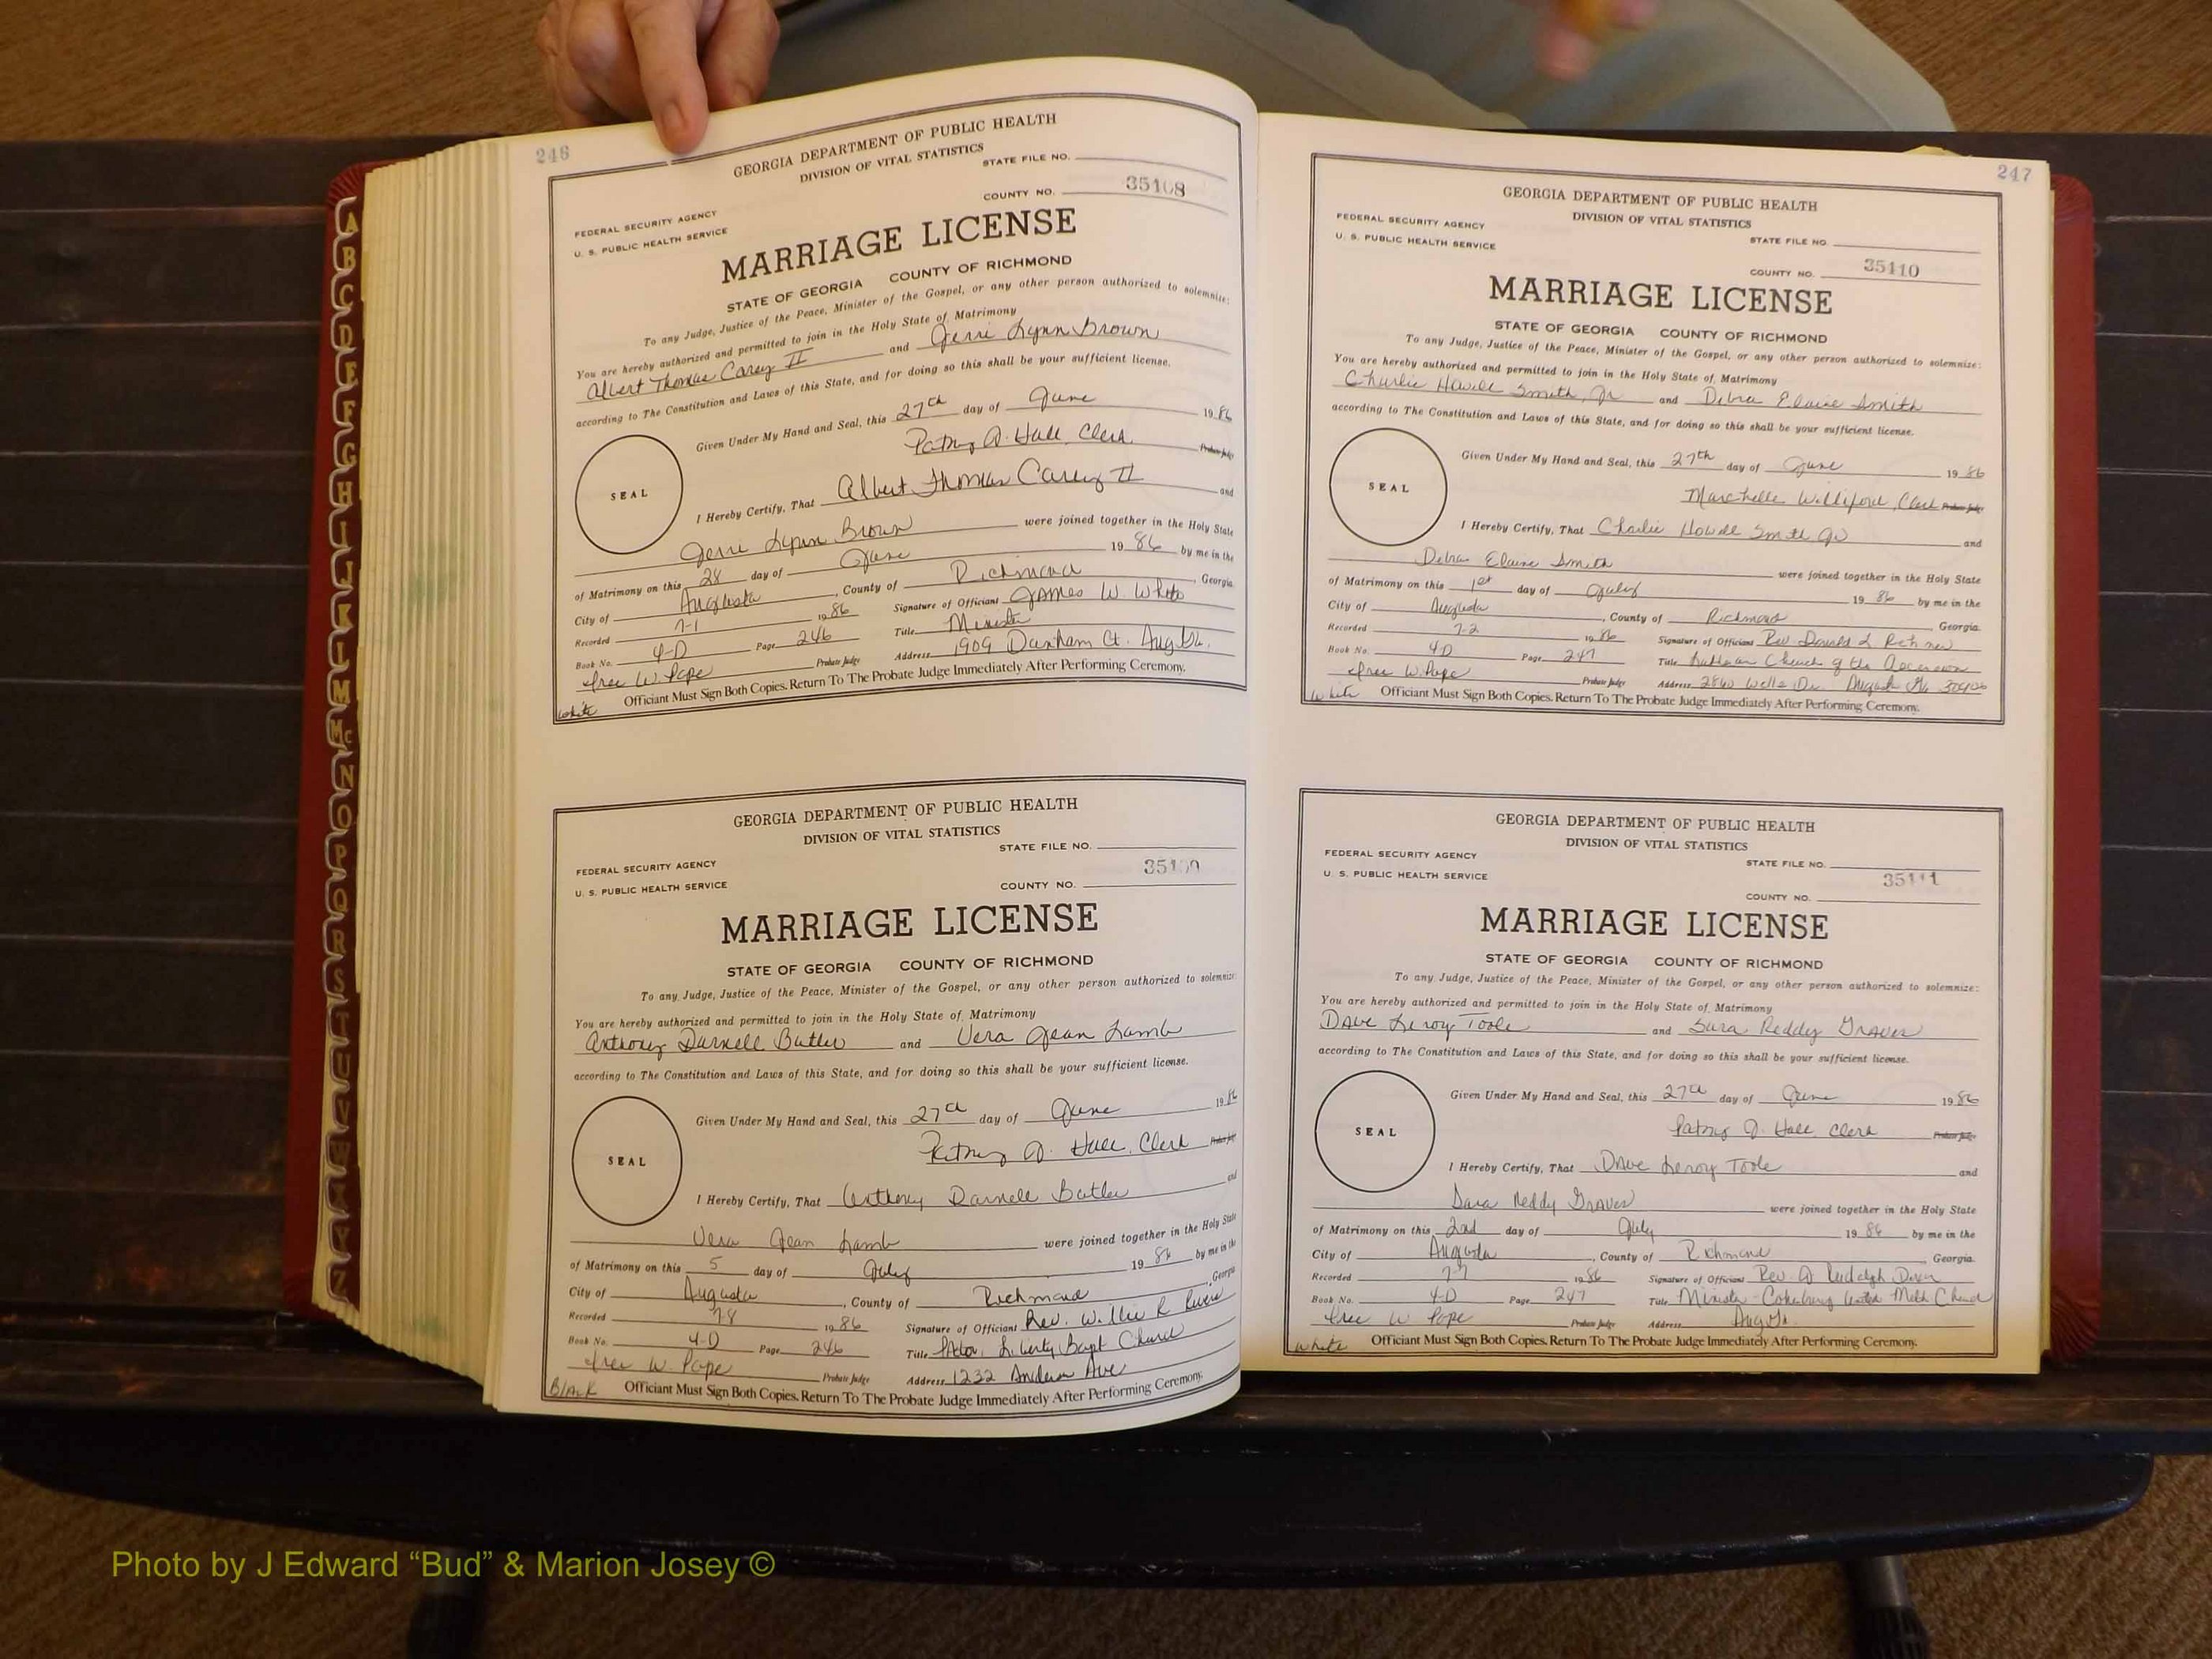 246
GEORGIA DEPARTMENT OF PUBLIC HEALTH
DIVISION OF VITAL STATISTICS
STATE FILE NO.
COUNTY NO. 35108
FEDERAL SECURITY AGENCY
U. S. PUBLIC HEALTH SERVICE
MARRIAGE LICENSE
STATE OF GEORGIA COUNTY OF RICHMOND
To any Judge, Justice of the Peace, Minister of the Gospel, or any other person authorized to solemnize:
You are hereby authorized and permitted to join in the Holy State of Matrimony
Albert Thomas Carey II and Jerri Lynn Brown
according to The Constitution and Laws of this State, and for doing so this shall be your sufficient license.
Given Under My Hand and Seal, this 27th day of June 1986
Hall, Clerk Probate Judge
SEAL
I Hereby Certify, That Albert Thomas Carey II and
Jerri Lynn Brown were joined together in the Holy State
of Matrimony on this 28 day of June 1986 by me in the
City of Augusta, County of Richmond, Georgia.
Recorded 7-1 1986 Signature of Officiant James W. White
Book No. 4-D Page 246 Title Minister
W. Pope Probate Judge Address 1909 Ct. Aug Ga.
White Officiant Must Sign Both Copies. Return To The Probate Judge Immediately After Performing Ceremony.
GEORGIA DEPARTMENT OF PUBLIC HEALTH
DIVISION OF VITAL STATISTICS
STATE FILE NO.
COUNTY NO. 35109
FEDERAL SECURITY AGENCY
U. S. PUBLIC HEALTH SERVICE
MARRIAGE LICENSE
STATE OF GEORGIA COUNTY OF RICHMOND
To any Judge, Justice of the Peace, Minister of the Gospel, or any other person authorized to solemnize:
You are hereby authorized and permitted to join in the Holy State of Matrimony
Anthony Darnell Butler and Vera Jean Lamb
according to The Constitution and Laws of this State, and for doing so this shall be your sufficient license.
Given Under My Hand and Seal, this 27th day of June 1986
Hall, Clerk Probate Judge
SEAL
I Hereby Certify, That Anthony Darnell Butler and
Vera Jean Lamb were joined together in the Holy State
of Matrimony on this 5 day of July 1986 by me in the
City of Augusta, County of Richmond, Georgia
Recorded 7-8 1986 Signature of Officiant Rev. Willie R Rivers
Book No. 4-D Page 246 Title Pastor, Liberty Bapt Church
W. Pope Probate Judge Address 1232 Anderson Ave
Black Officiant Must Sign Both Copies. Return To The Probate Judge Immediately After Performing Ceremony.
247
GEORGIA DEPARTMENT OF PUBLIC HEALTH
DIVISION OF VITAL STATISTICS
FEDERAL SECURITY AGENCY
U. S. PUBLIC HEALTH SERVICE
STATE FILE NO.
COUNTY NO. 35110
MARRIAGE LICENSE
STATE OF GEORGIA COUNTY OF RICHMOND
To any Judge, Justice of the Peace, Minister of the Gospel, or any other person authorized to solemnize:
You are hereby authorized and permitted to join in the Holy State of Matrimony
Charlie Howell Smith, Jr and Debra Elaine Smith
according to The Constitution and Laws of this State, and for doing so this shall be your sufficient license.
Given Under My Hand and Seal, this 27th day of June 1986
Marchelle Williford, Clerk Probate Judge
SEAL
I Hereby Certify, That Charlie Howell Smith Jr and
Debra Elaine Smith were joined together in the Holy State
of Matrimony on this 1st day of July 1986 by me in the
City of Augusta, County of Richmond Georgia.
Recorded 7-2 1986 Signature of Officiant Rev. Donald L
Book No. 4D Page 247 Title Lutheran Church of the Ascension
W. Pope Probate Judge Address 2860 Wells Dr. Augusta Ga
White Officiant Must Sign Both Copies. Return To The Probate Judge Immediately After Performing Ceremony.
GEORGIA DEPARTMENT OF PUBLIC HEALTH
DIVISION OF VITAL STATISTICS
FEDERAL SECURITY AGENCY
U. S. PUBLIC HEALTH SERVICE
STATE FILE NO.
COUNTY NO. 35111
MARRIAGE LICENSE
STATE OF GEORGIA COUNTY OF RICHMOND
To any Judge, Justice of the Peace, Minister of the Gospel, or any other person authorized to solemnize:
You are hereby authorized and permitted to join in the Holy State of Matrimony
Dave Leroy Toole and Sara Reddy Graves
according to The Constitution and Laws of this State, and for doing so this shall be your sufficient license.
Given Under My Hand and Seal, this 27th day of June 1986
Hall, Clerk Probate Judge
SEAL
I Hereby Certify, That Dave Leroy Toole and
Sara Reddy Graves were joined together in the Holy State
of Matrimony on this 2nd day of July 1986 by me in the
City of Augusta, County of Richmond, Georgia.
Recorded 7-7 1986 Signature of Officiant Rev.
Book No. 4-D Page 247 Title Minister - United Meth Church
W Pope Probate Judge Address Aug Ga.
White Officiant Must Sign Both Copies. Return To The Probate Judge Immediately After Performing Ceremony.
A
B
C
D
E
F
G
H
I
J
K
L
M
Mc
N
O
P
Q
R
S
T
U
V
W
X
Y
Z
Photo by J Edward “Bud” & Marion Josey ©